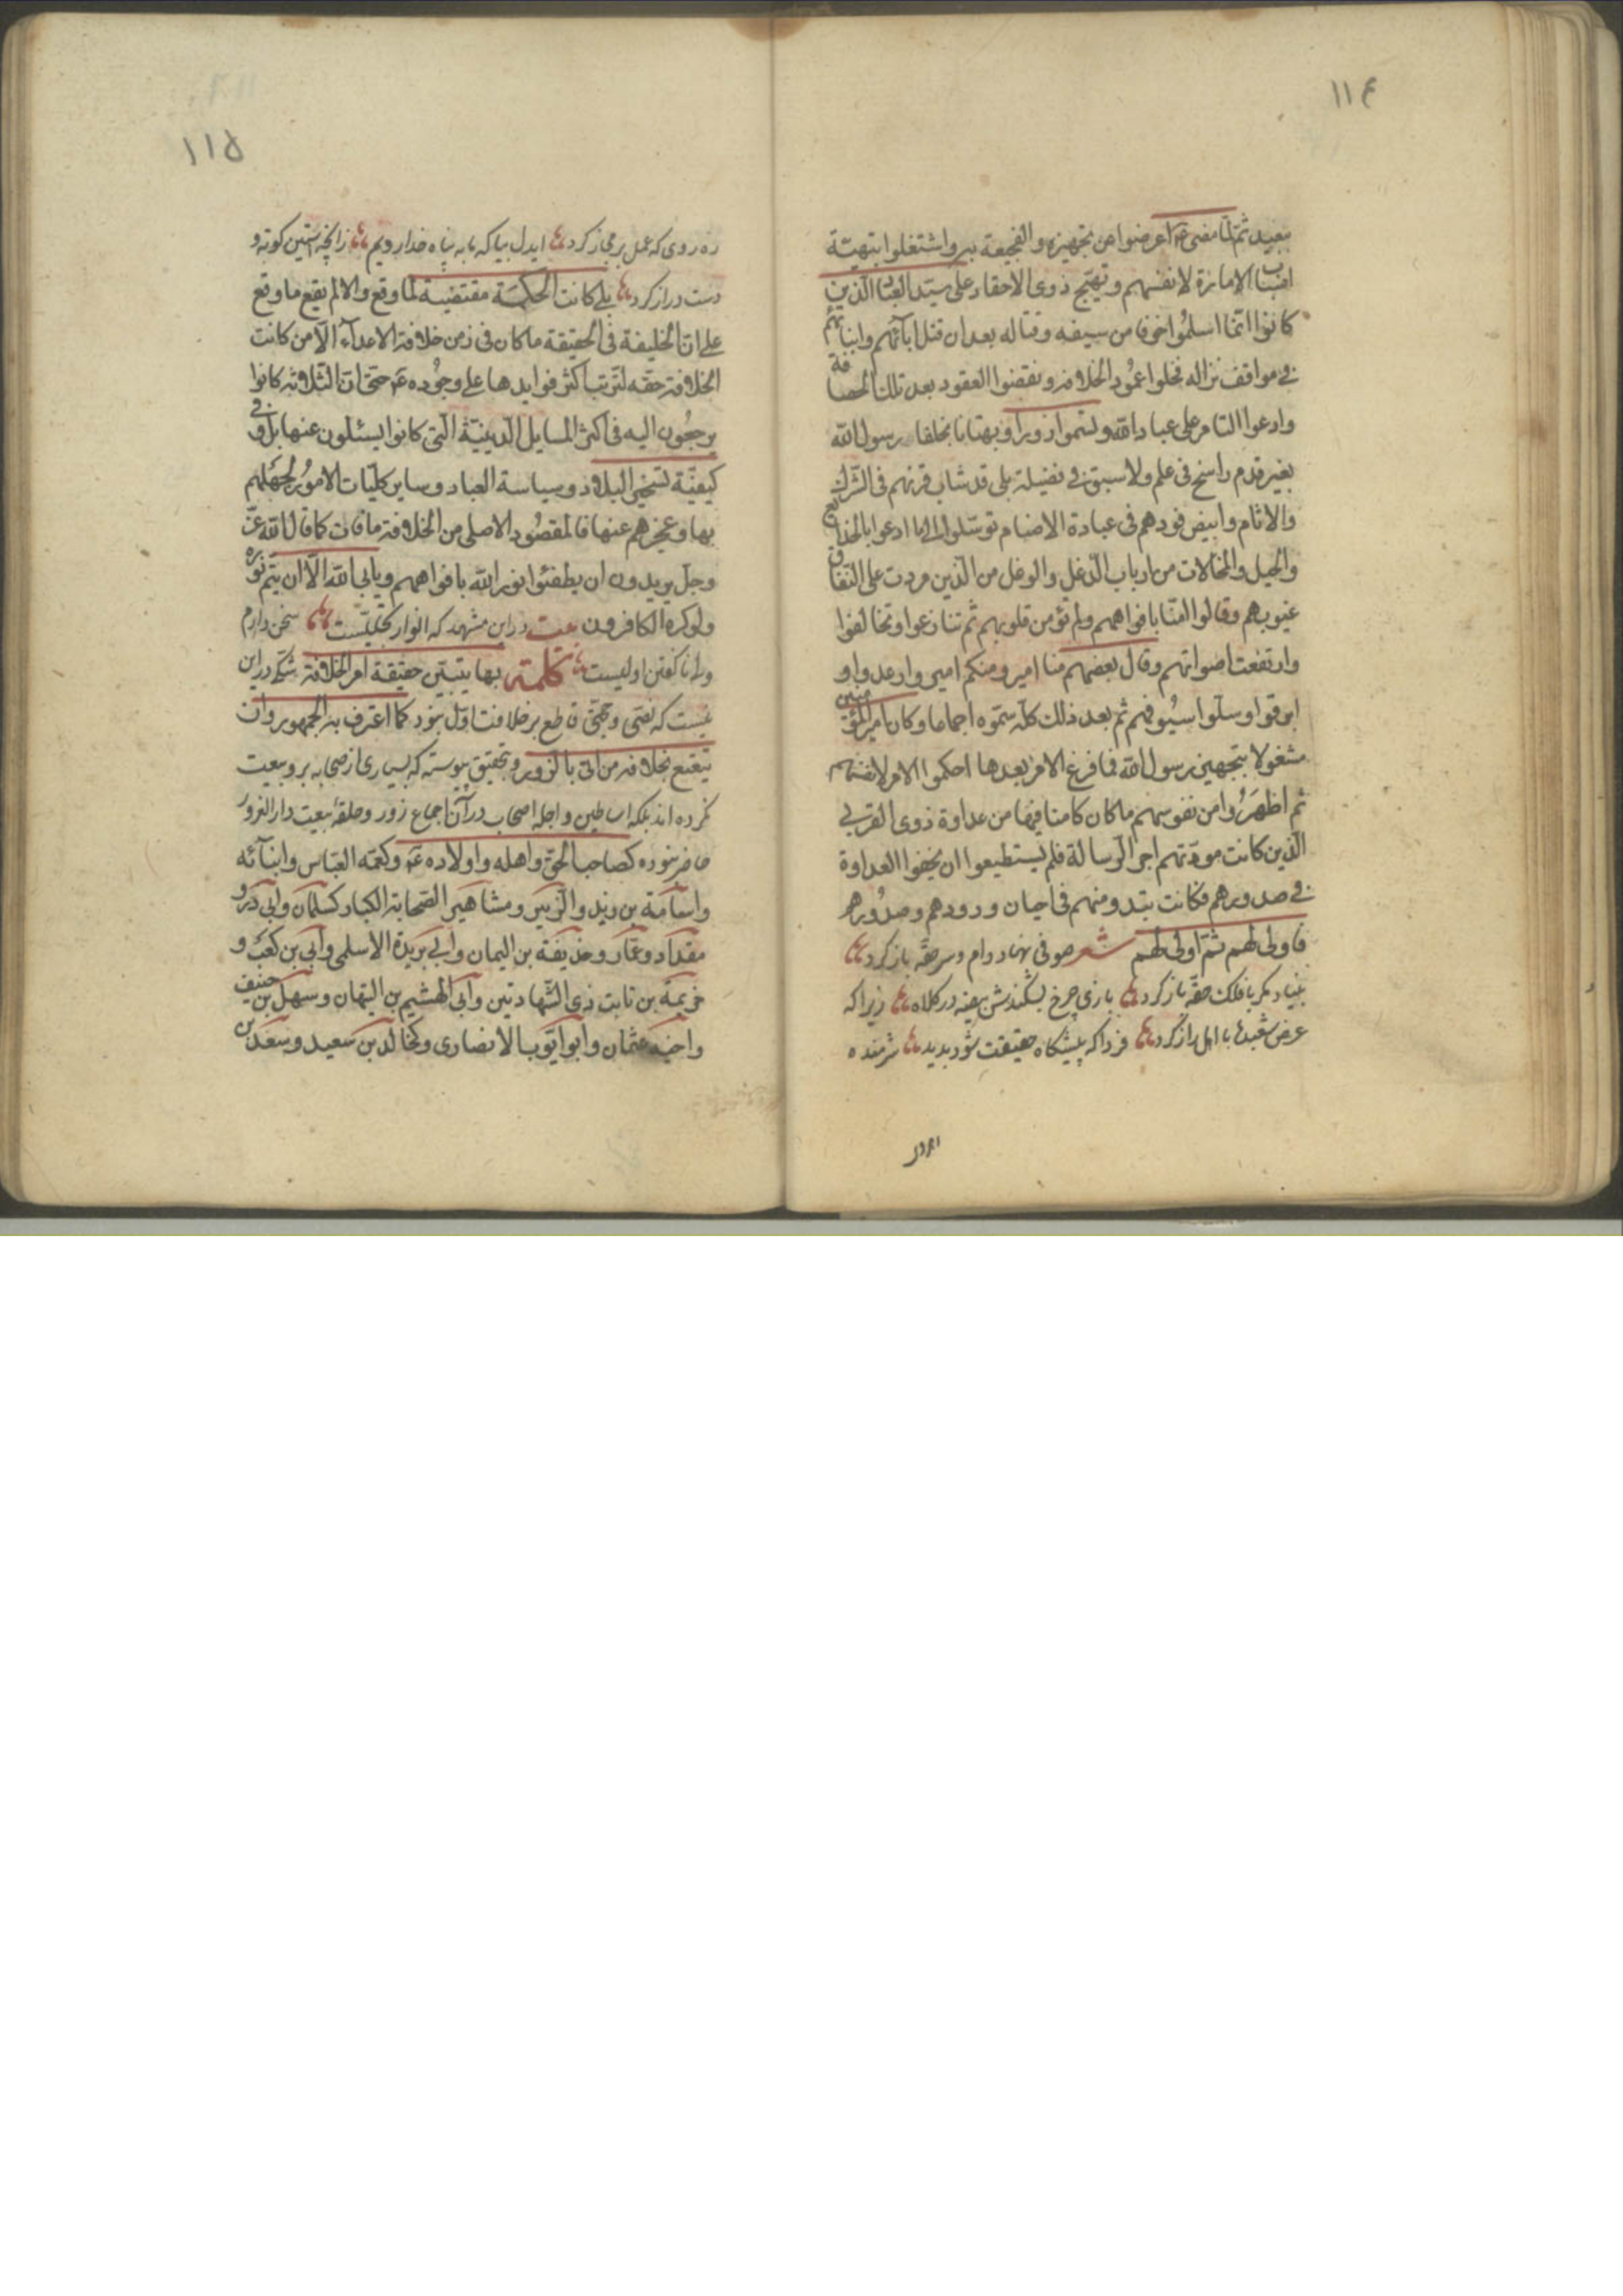 ١١٤
ببعيد ثم لما مضى ع اعرضوا عن تجهيزه والفجيعة به واشتغلوا بتهيئة
اسباب الامارة لانفسهم وتهيج ذوى الاحقاد على سيد العباد الذين
كانوا انما اسلموا خوفا من سيفه وقتاله بعد ان قتل ابائهم وابنائهم
فى مواقف نزاله فحلوا عمود الخلافة ونقضوا العقود بعد تلك المصافقة
وادعوا التامر على عباد الله وتسموا زورا وبهتانا بخلفا رسول الله
بغير قدم راسخ فى علم ولا سبق فى فضيلة بلى قد شاب قرنهم فى الشرك
والاثام وابيض فودهم فى عبادة الاصنام توسلوا الى ما ادعوا بالخدايع
والحيل والمخالات من ارباب الدغل والوغل من الذين مردت على النفاق
غيوبهم وقالوا امنا بافواههم ولم تؤمن قلوبهم ثم تنازعوا وتخالفوا
وارتفعت اصواتهم وقال بعضهم منا امير ومنكم امير وارعدوا و
ابرقوا وسلوا سيوفهم ثم بعد ذلك كله سموه اجماعا وكان امير المؤمنين
مشغولا بتجهيز رسول الله فما فرغ الا من بعد ما احكموا الامر لانفسهم
ثم اظهروا من نفوسهم ما كان كامنا فيها من عداوة ذوى القربى
الذين كانت مودتهم اجر الرسالة فلم يستطيعوا ان يخفوا العداوة
فى صدورهم فكانت تبدو منهم فى احيان ورودهم وصدورهم
فاولى لهم ثم اولى لهم شعر صوفى نهاد دام وسر حقه باز كرد
بنياد مكر با فلك حقه باز كرد بازى چرخ بشكندش بيضه در كلاه زيرا كه
عرض شعبده با اهل راز كرد فردا كه پيشكاه حقيقت شود پديد شرمنده
رهرو
١١٥
ره روى كه عمل بر مجاز كرد ايدل بيا كه ما به پناه خدا رويم زانچه آستين كوته و
دست دراز كرد بلى كانت الحكمة مقتضية لما وقع والا لم يقع ما وقع
على ان الخليفة فى الحقيقة ما كان فى زمن خلافة الاعداء الا من كانت
الخلافة حقه لترتب اكثر فوايدها على وجوده ع حتى ان الثلاثة كانوا
يرجعون اليه فى اكثر المسايل الدينية التى كانوا يسئلون عنها بل و فى
كيفية تسخير البلاد وسياسة العباد وساير كليات الامور لجهلهم
بها وعجزهم عنها فالمقصود الاصلى من الخلافة ما فات كما قال الله عز
وجل يريدون ان يطفئوا نور الله بافواههم ويابى الله الا ان يتم نوره
ولو كره الكافرون بيت در اين مشهد كه انوار تجليست سخن دارم
ولى ناكفتن اوليست كلمة بها يتبين حقيقة امر الخلافة شكى در اين
نيست كه نصى وحجتى قاطع بر خلافت اول نبود كما اعترف به الجمهور وان
تيقع بخلافه من اتى بالزور وبتحقيق پيوسته كه بسيارى از صحابه بر و بيعت
نكرده اند بلكه اساطين واجله اصحاب در آن اجماع زور وحلقه بيعت دار الغرور
حاضر نبوده كصاحب الحق واهله واولاده ع وكعمه العباس وابنائه
واسامة بن زيد والزبير ومشاهير الصحابة الكبار كسلمان وابى ذر و
مقداد وعمار وحذيفة بن اليمان وابى بريدة الاسلمى وابى بن كعب و
خزيمة بن ثابت ذى الشهادتين وابى الهشيم بن التيهان وسهل بن حنيف
واخيه عثمان وابو ايوب الانصارى وكخالد بن سعيد وسعد بن